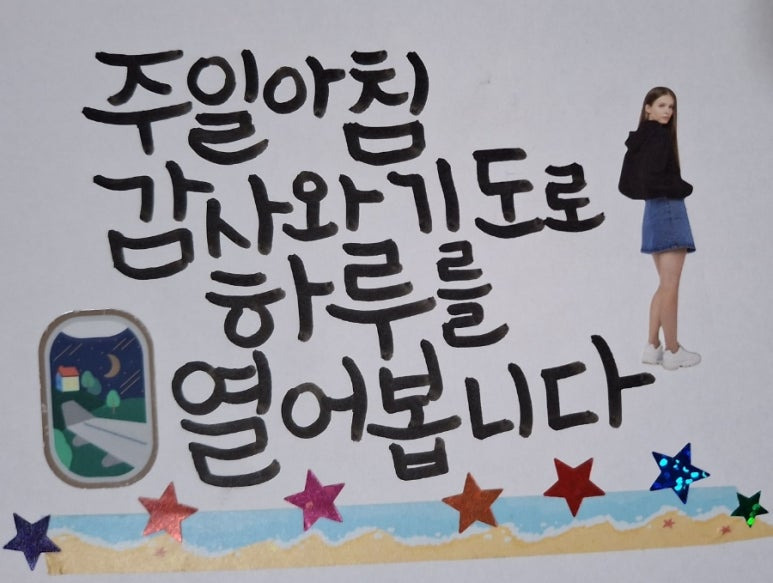 주일아침
감사와 기도로
하루를
열어봅니다